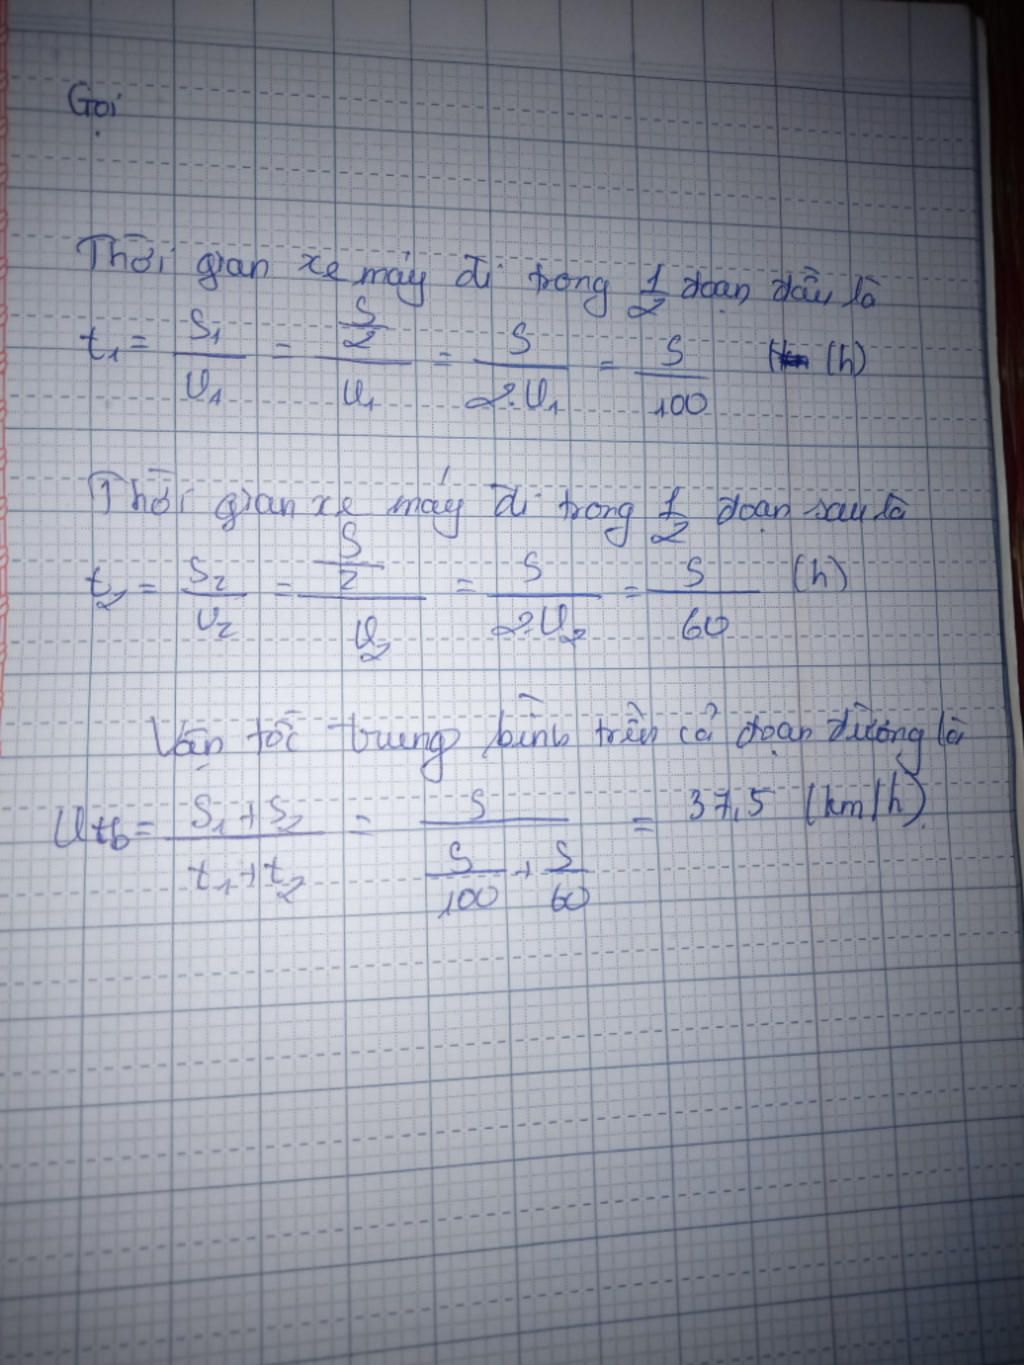 Gọi
Thời gian xe máy đi trong 1/2 đoạn đầu là
t₁ = S₁/v₁ = (S/2)/v₁ = S/(2.v₁) = S/100 (h)
Thời gian xe máy đi trong 1/2 đoạn sau là
t₂ = S₂/v₂ = (S/2)/v₂ = S/(2.v₂) = S/60 (h)
Vận tốc trung bình trên cả đoạn đường là
vtb = (S₁+S₂)/(t₁+t₂) = S/(S/100 + S/60) = 37,5 (km/h)